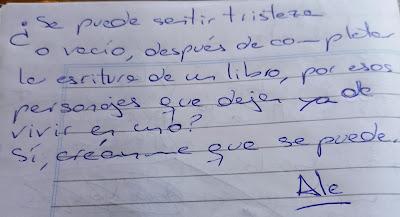 ¿Se puede sentir tristeza
o vacío, después de completar
la escritura de un libro, por esos
personajes que dejan ya de
vivir en uno?
Sí, créanme que se puede.
Ale